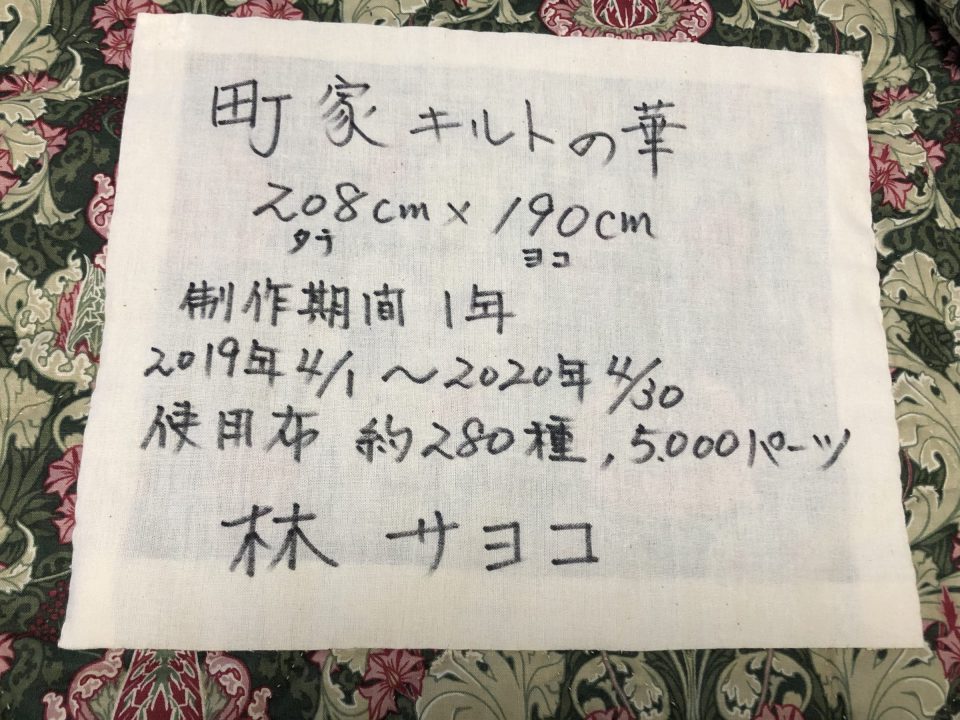 町家キルトの華
208cm×190cm
タテ ヨコ
制作期間 1年
2019年4/1～2020年4/30
使用布 約280種, 5.000パーツ
林 サヨコ